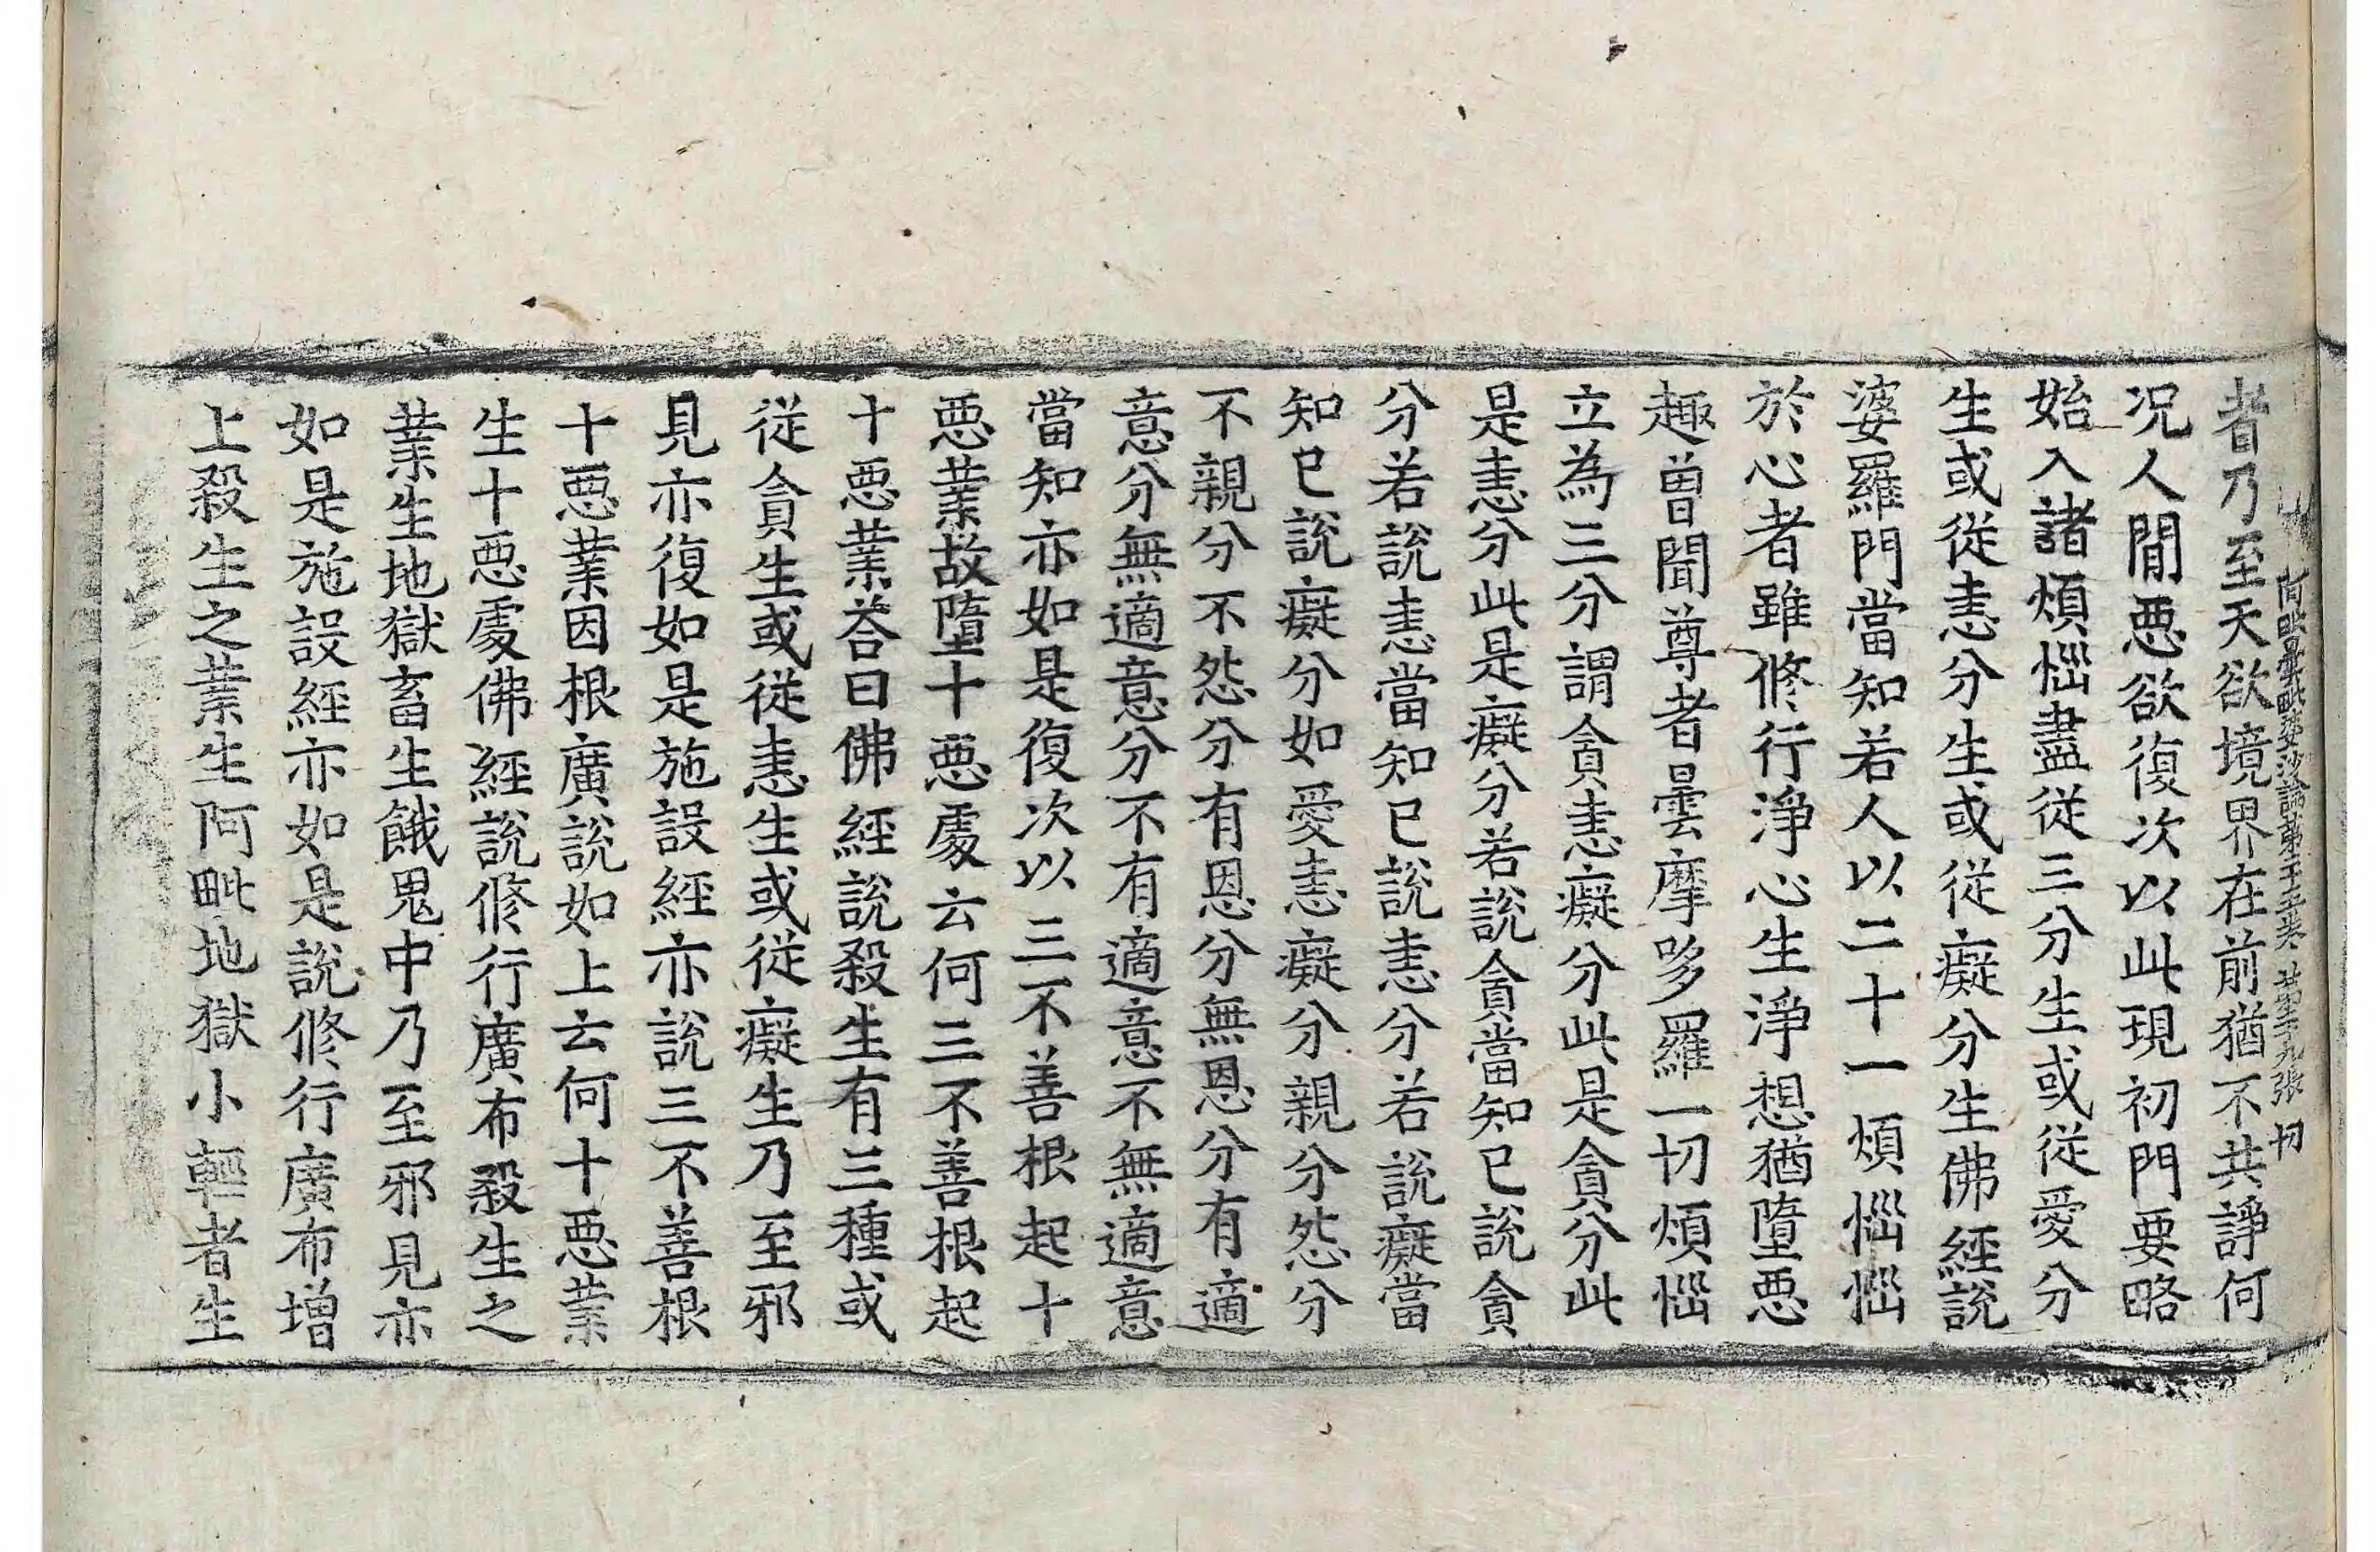 阿毗曇毗婆沙論第二十五卷 第二十九張 切
者乃至天欲境界在前猶不共諍何
况人閒惡欲復次以此現初門要略
始入諸煩惱盡從三分生或從愛分
生或從恚分生或從癡分生佛經說
婆羅門當知若人以二十一煩惱惱
於心者雖修行淨心生淨想猶墮惡
趣曾聞尊者曇摩哆羅一切煩惱
立為三分謂貪恚癡分此是貪分此
是恚分此是癡分若說貪當知已說貪
分若說恚當知已說恚分若說癡當
知已說癡分如愛恚癡分親分怨分
不親分不怨分有恩分無恩分有適
意分無適意分不有適意不無適意
當知亦如是復次以三不善根起十
惡業故墮十惡處云何三不善根起
十惡業荅曰佛經說殺生有三種或
從貪生或從恚生或從癡生乃至邪
見亦復如是施設經亦說三不善根
十惡業因根廣說如上云何十惡業
生十惡處佛經說修行廣布殺生之
業生地獄畜生餓鬼中乃至邪見亦
如是施設經亦如是說修行廣布增
上殺生之業生阿毗地獄小輕者生